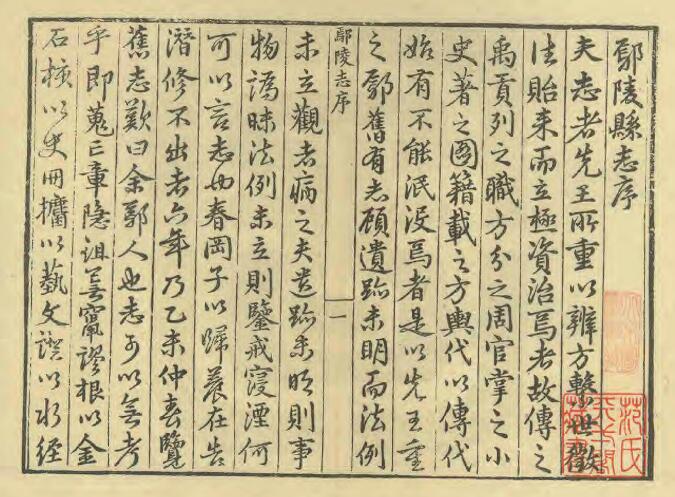 鄢陵縣志序
夫志者先王所重以辨方繫世徵
往貽来而立極資治焉者故傳之
禹貢列之職方分之周官掌之小
史著之圖籍載之方輿代以傳代
始有不能泯没焉者是以先王重
之鄢舊有志顧遺跡未明而法例
鄢陵志序
一
未立觀者病之夫遺跡未明則事
物譌昧法例未立則鑒戒寖湮何
可以言志也春岡子以歸養在告
潛修不出者六年乃乙未仲春覽
舊志歎曰余鄢人也志可以無考
乎即蒐亡章隐謬根以金
石核以史冊以藝文以水经
范氏
天一閣
藏書